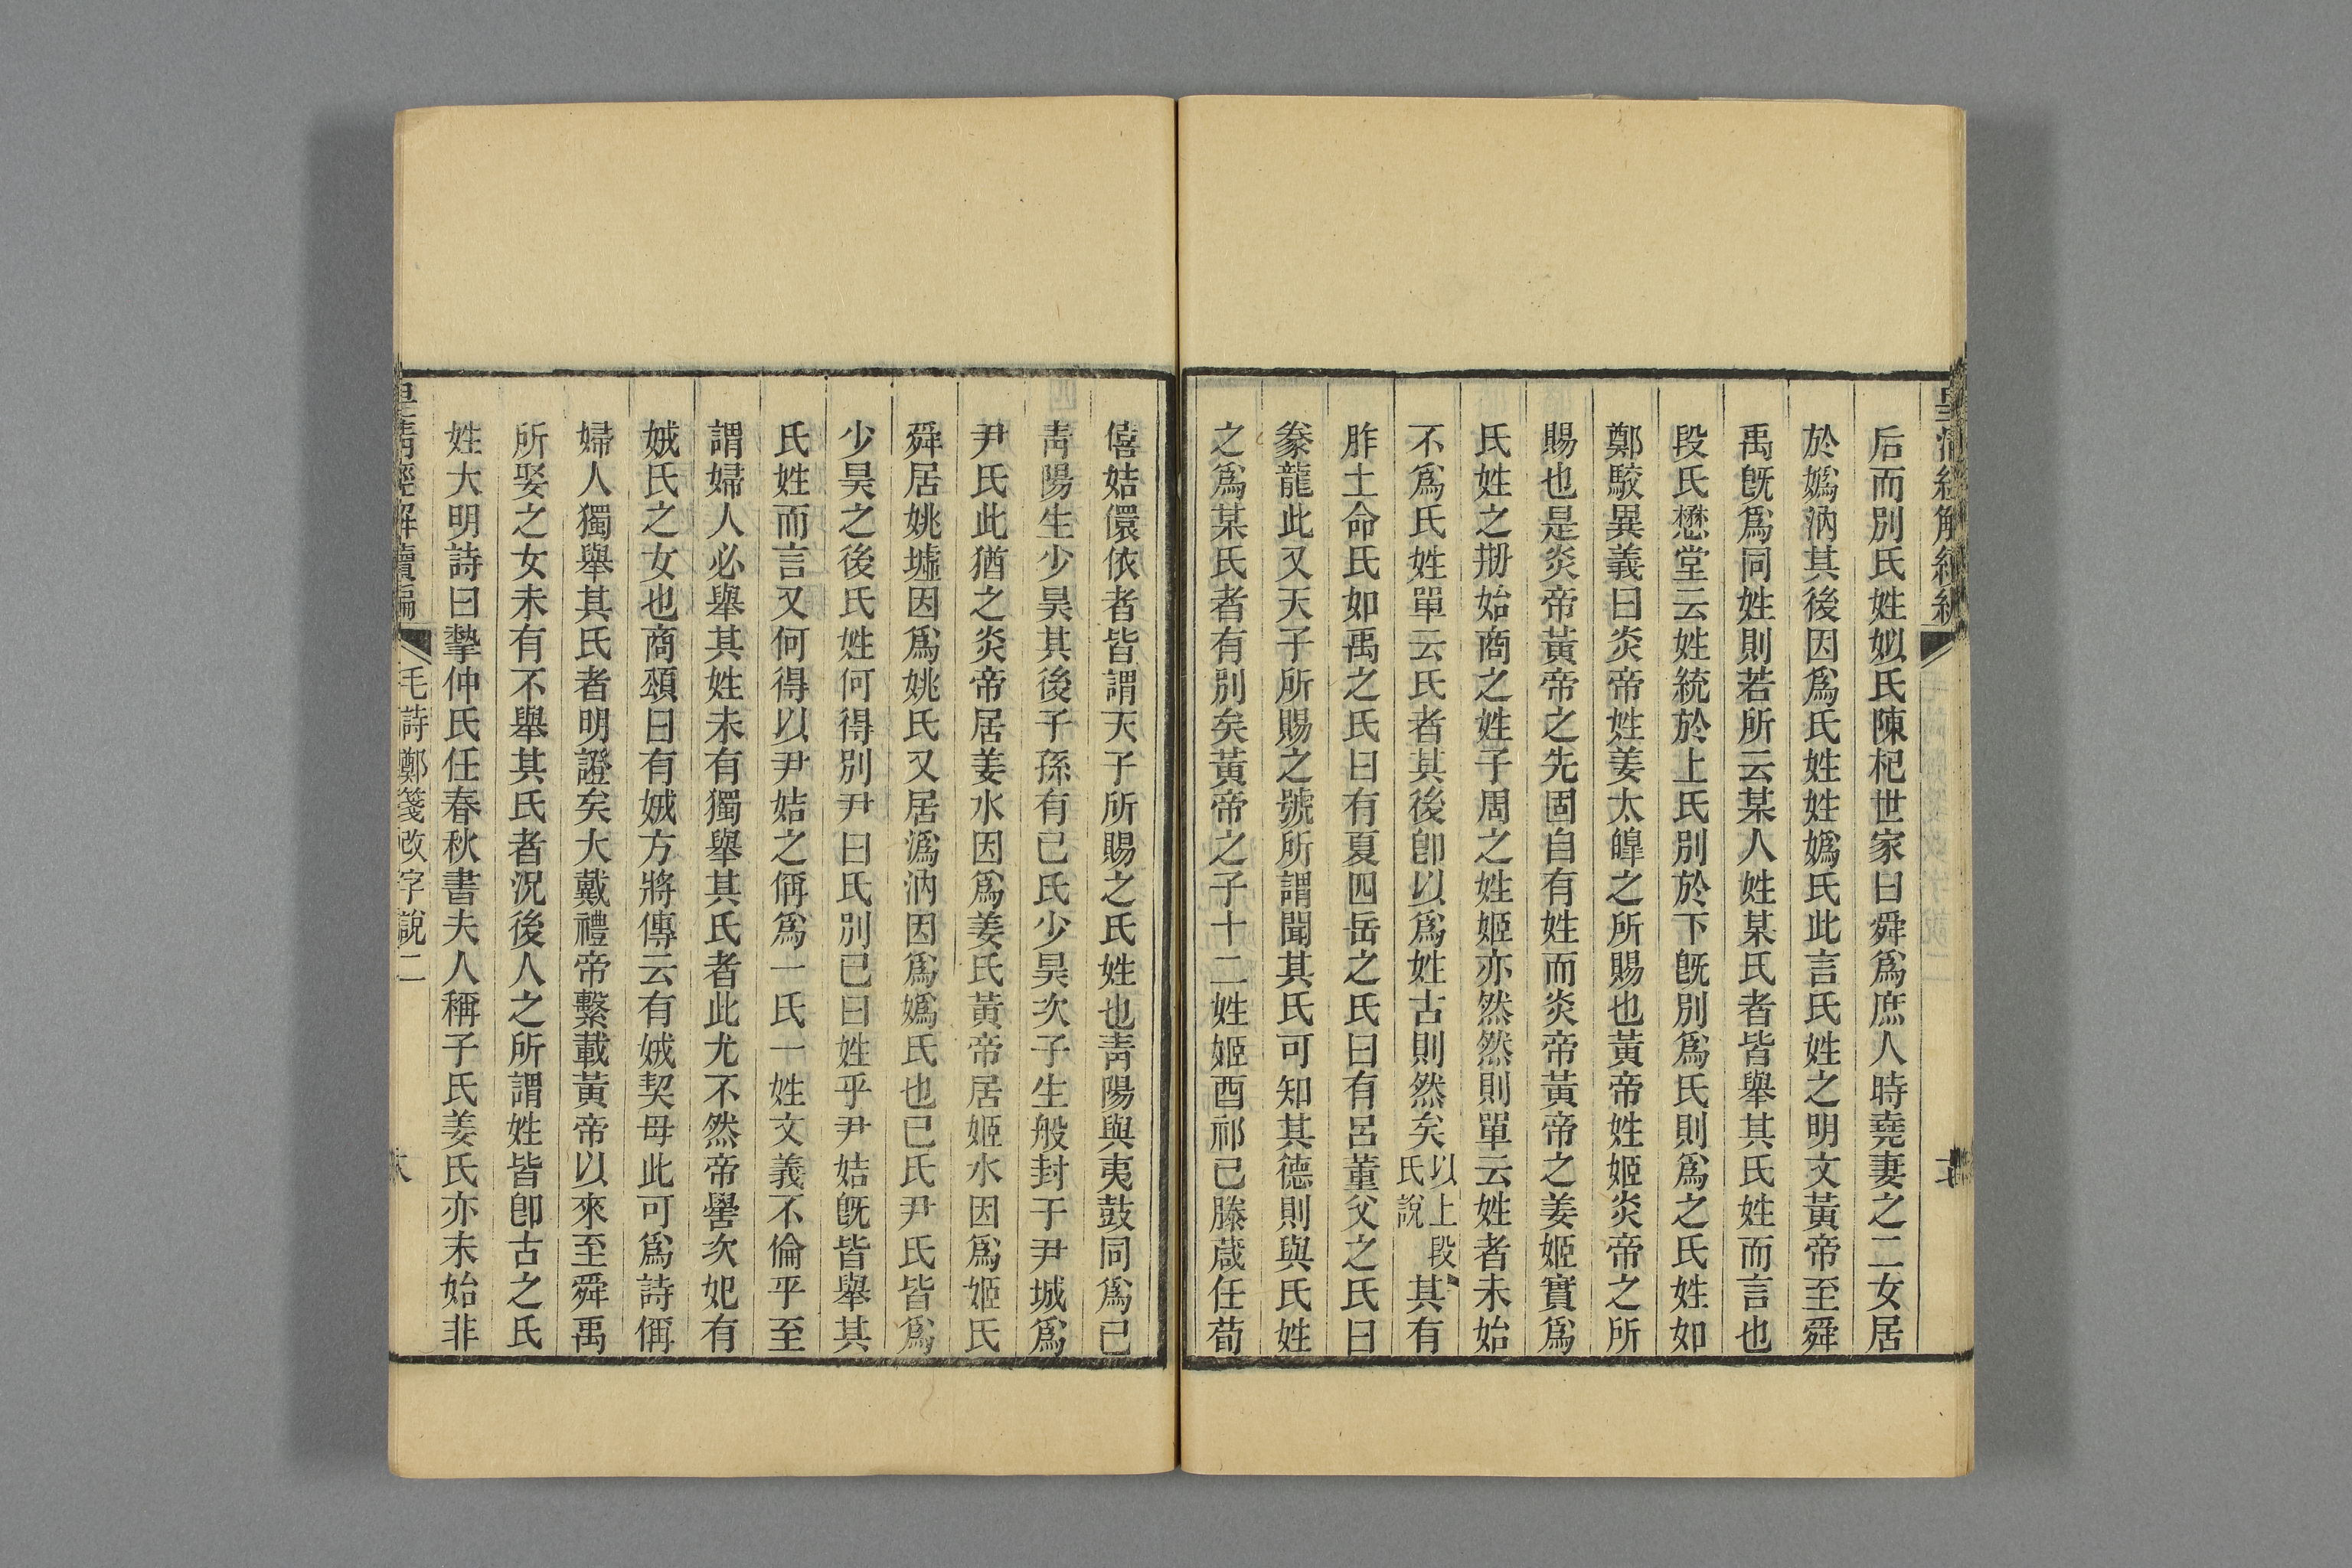 后而別氏姓姒氏陳杞世家曰舜爲庶人時堯妻之二女居
於嬀汭其後因爲氏姓姓嬀氏此言氏姓之明文黃帝至舜
禹旣爲同姓則若所云某人姓某氏者皆舉其氏姓而言也
段氏懋堂云姓統於上氏別於下旣別爲氏則爲之氏姓如
鄭駮異義曰炎帝姓姜太皥之所賜也黃帝姓姬炎帝之所
賜也是炎帝黃帝之先固自有姓而炎帝黃帝之姜姬實爲
氏姓之剏始商之姓子周之姓姬亦然然則單云姓者未始
不爲氏姓單云氏者其後卽以爲姓古則然矣以上段氏說其有
胙土命氏如禹之氏曰有夏四岳之氏曰有呂董父之氏曰
豢龍此又天子所賜之號所謂聞其氏可知其德則與氏姓
之爲某氏者有別矣黃帝之子十二姓姬酉祁己滕葴任荀
僖姞儇依者皆謂天子所賜之氏姓也靑陽與夷鼓同爲己
靑陽生少昊其後子孫有己氏少昊次子生般封于尹城爲
尹氏此猶之炎帝居姜水因爲姜氏黃帝居姬水因爲姬氏
舜居姚墟因爲姚氏又居潙汭因爲嬀氏也己氏尹氏皆爲
少昊之後氏姓何得別尹曰氏別己曰姓乎尹姞旣皆舉其
氏姓而言又何得以尹姞之偁爲一氏一姓文義不倫乎至
謂婦人必舉其姓未有獨舉其氏者此尤不然帝嚳次妃有
娀氏之女也商頌曰有娀方將傳云有娀契母此可爲詩偁
婦人獨舉其氏者明證矣大戴禮帝繫載黃帝以來至舜禹
所娶之女未有不舉其氏者況後人之所謂姓皆卽古之氏
姓大明詩曰摯仲氏任春秋書夫人稱子氏姜氏亦未始非
皇清經解續編 毛詩鄭箋改字說二